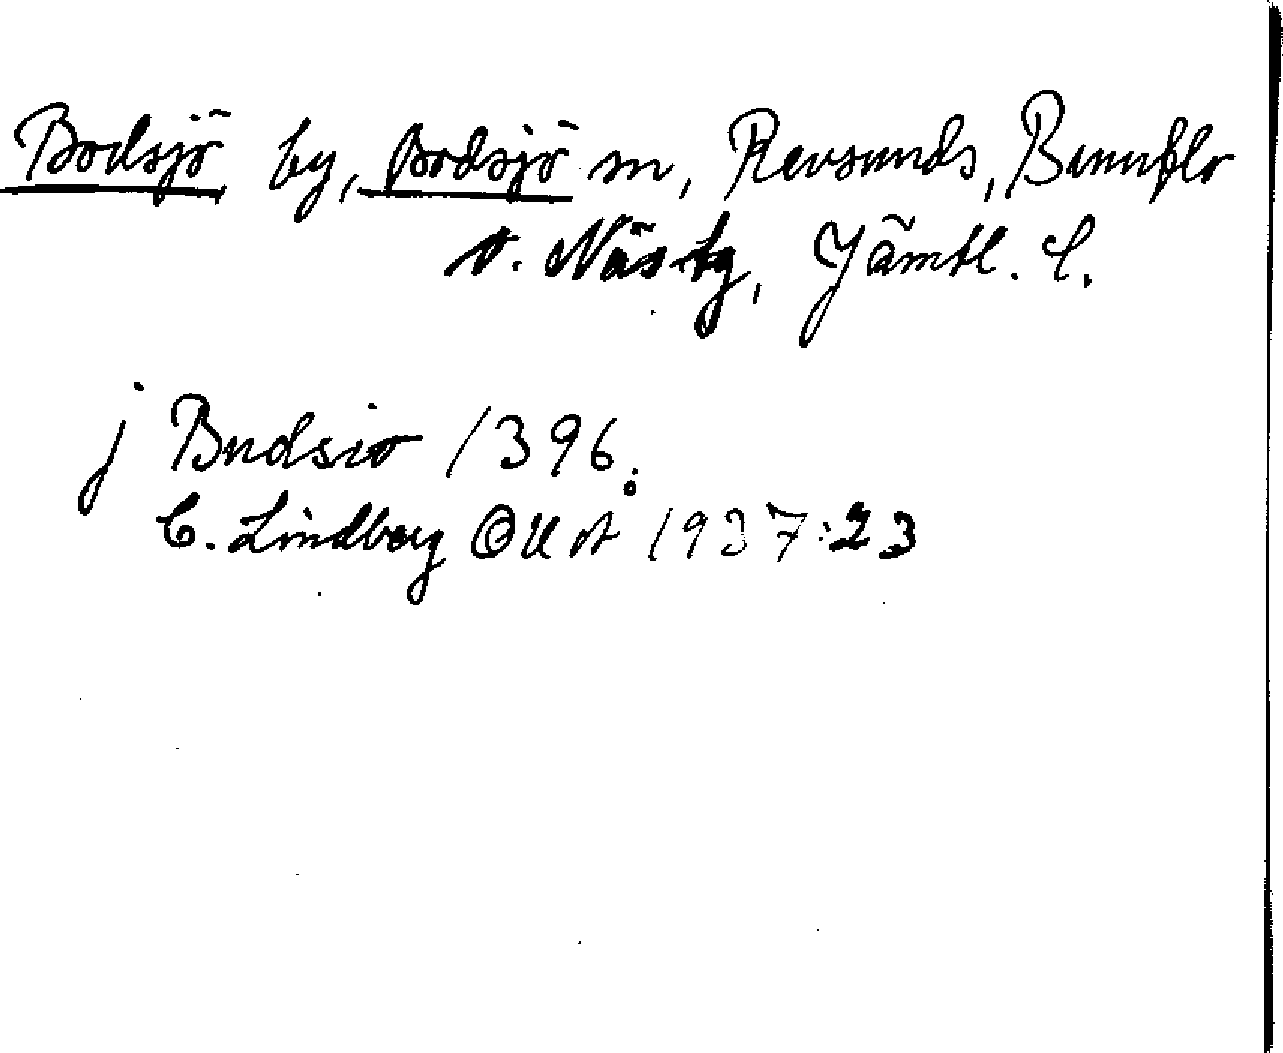 Bodsjö by, Bodsjö sn, Revsunds, Brunflo
o. Näs tg, Jämtl. l.
j Budsio 1396.
C. Lindberg OUÅ 1937:23